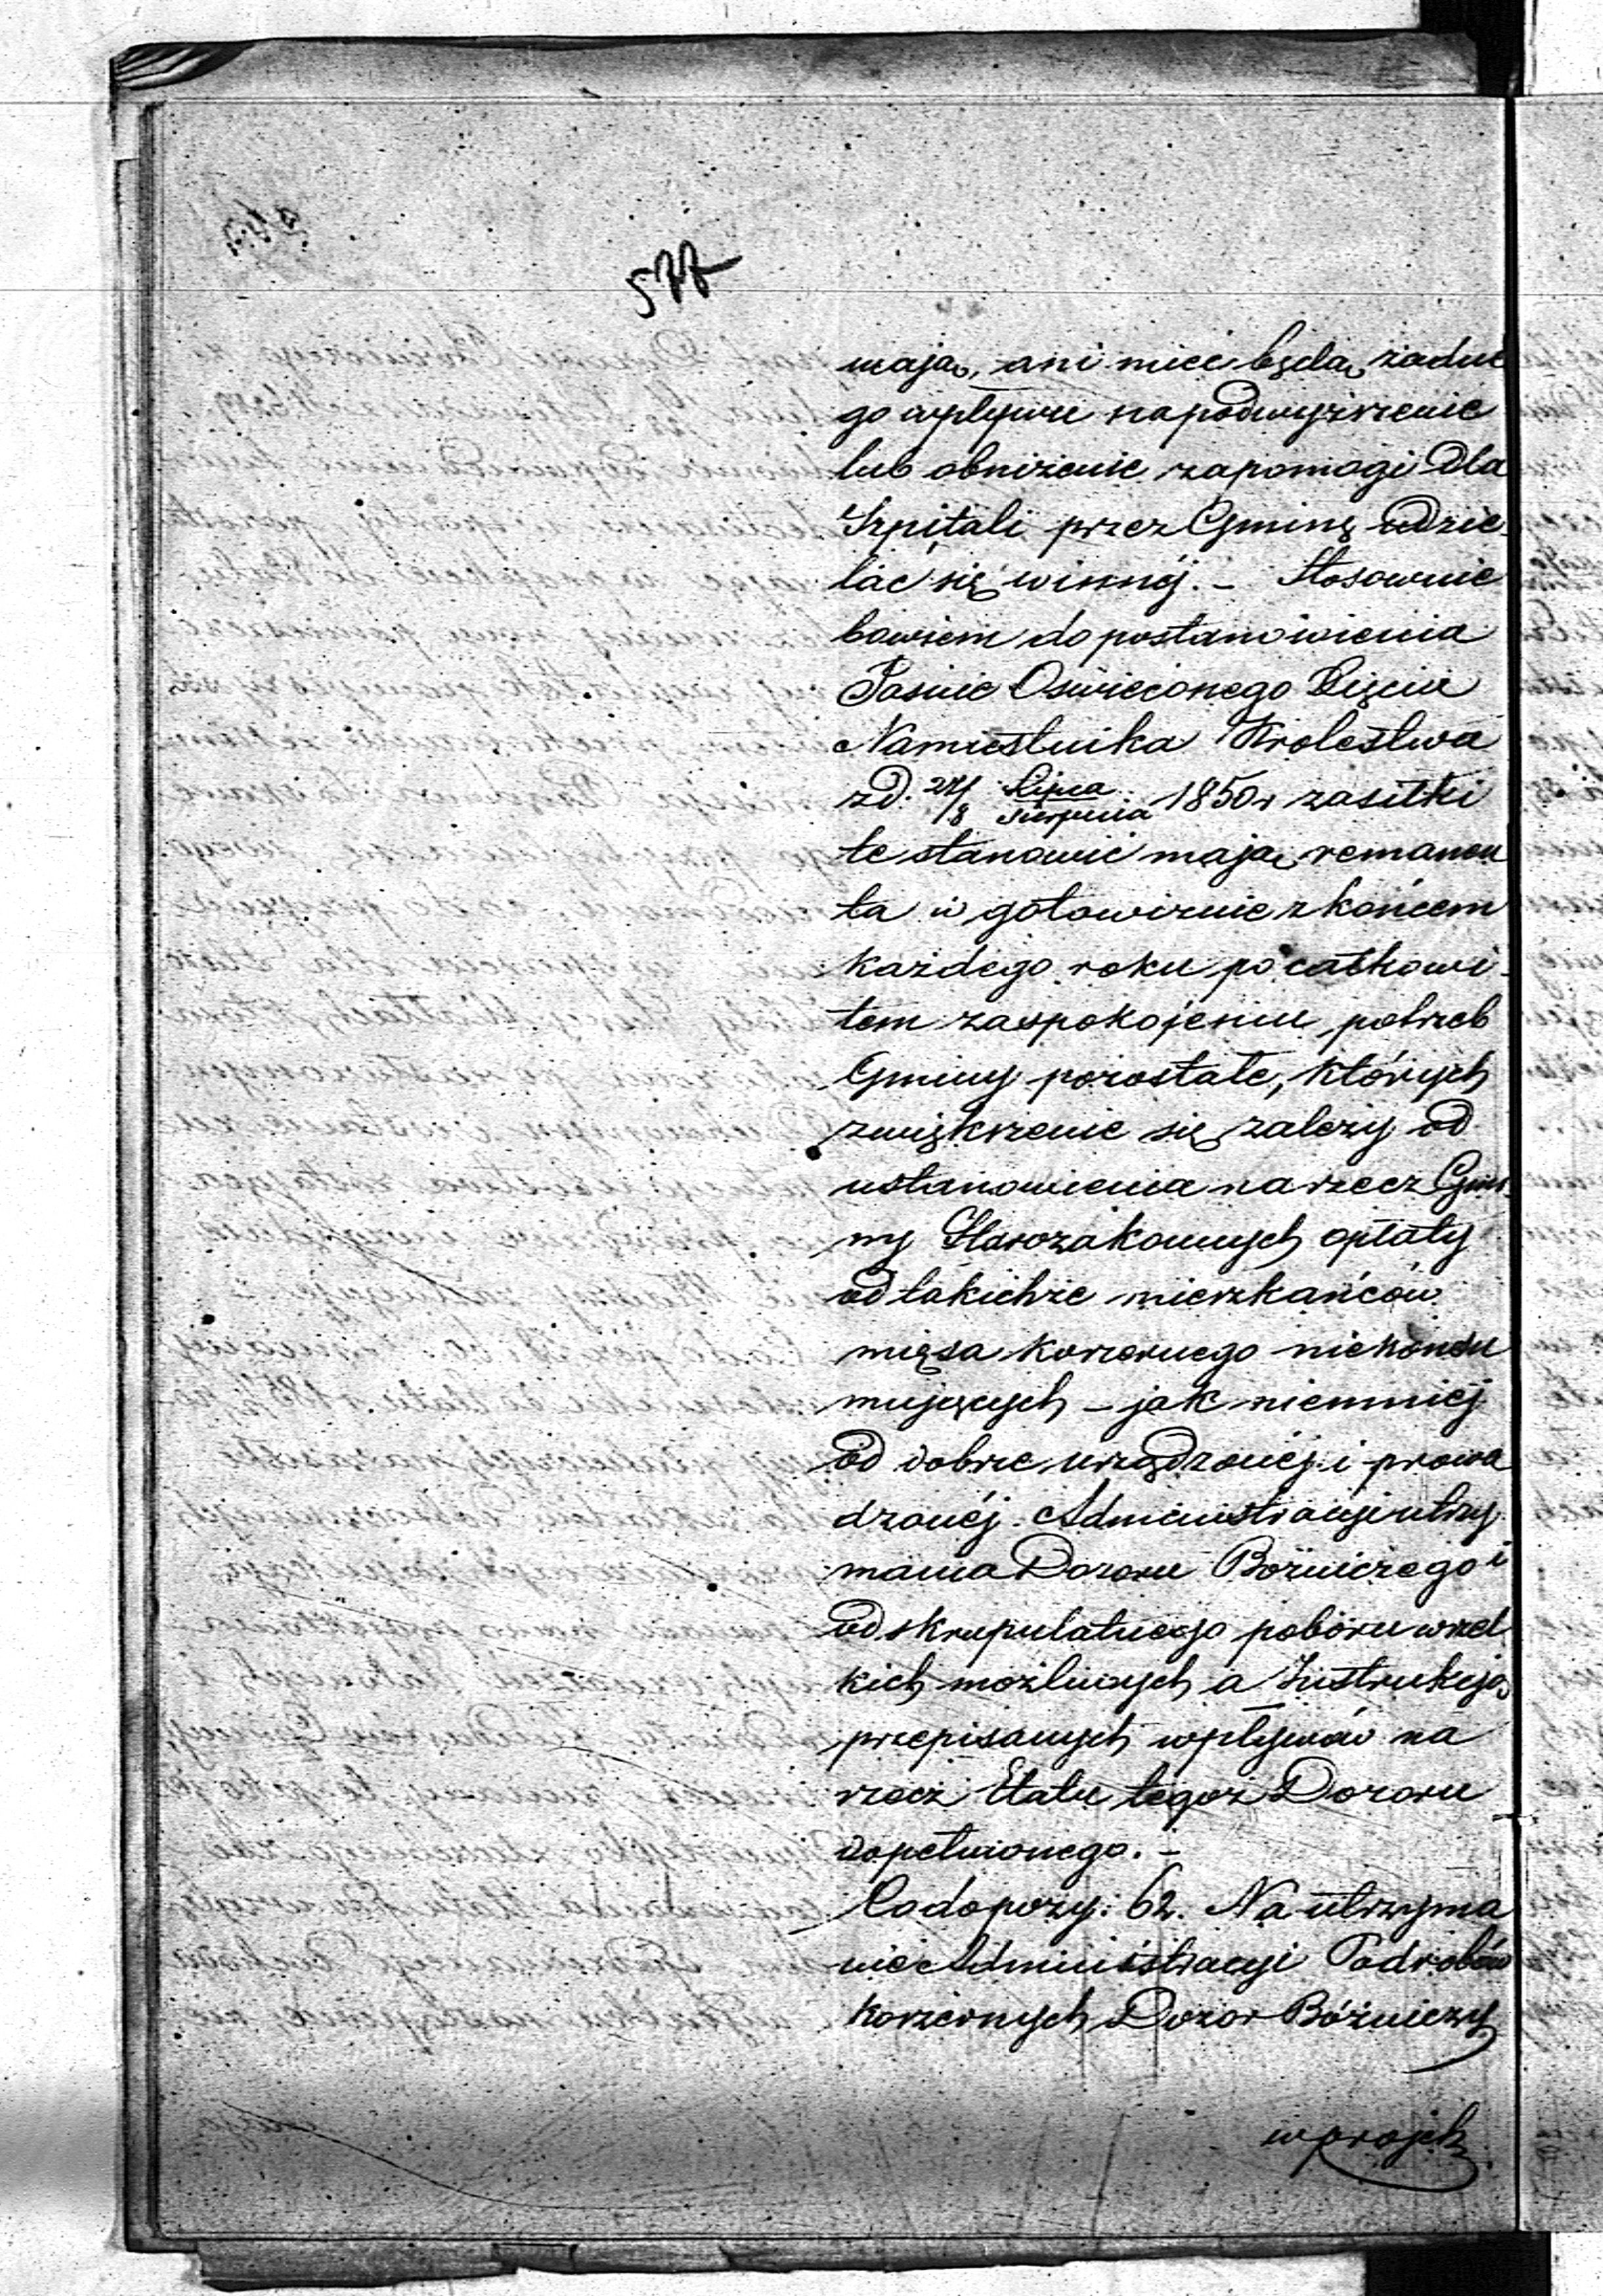 577
mają, ani mieć będą żadne
go wpływu na podwyższenie
lub obniżenie zapomogi dla
Szpitali przez Gminę udzie-
lać się winnéj. – Stosownie
bowiem do postanowienia
Jaśnie Oświeconego Xięcia
Namiestnika Królestwa
z d. 27/8 Lipca/Sierpnia 1850 r zasiłki
te stanowić mają remanen
ta w gotowiznie z końcem
każdego roku po całkowi-
tem zaspokojeniu potrzeb
Gminy pozostałe, których
zwiększenie się zależy od
ustanowienia na rzecz Gmi-
ny Starozakonnych opłaty
od takichże mieszkańców
mięsa koszernego niekonsu
mujących – jak niemniéj
od dobrze urządzonéj i prowa
dzonéj Administracyi utrzy-
mania Dozoru Bóżniczego i
od skrupulatnego poboru wszel
kich możliwych a Instrukcją
przepisanych wpływów na
rzecz Etatu tegoż Dozoru
dopełnionego. –
Co do pozy: 62. Na utrzyma
nie Administracyi Podrobów
koszernych Dozór Bóżniczy
w projek